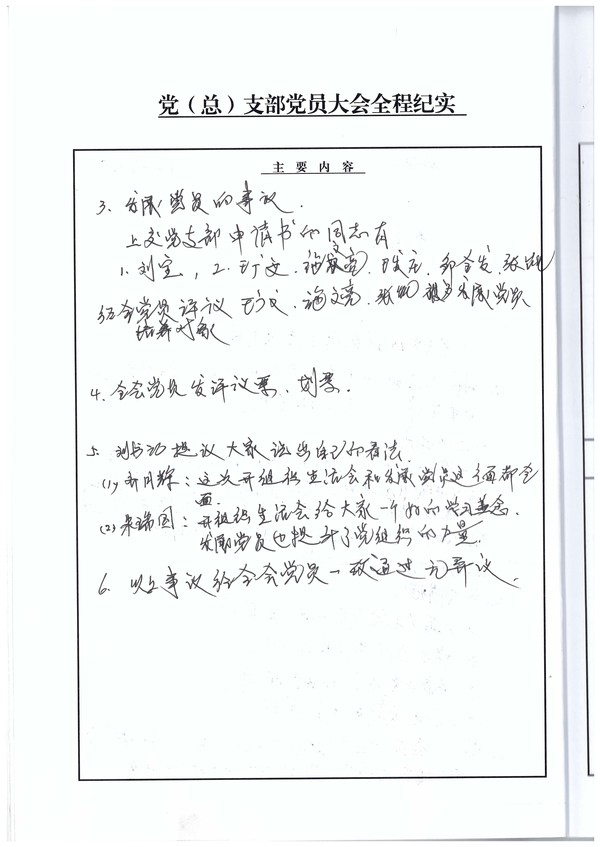 党（总）支部党员大会全程纪实
主 要 内 容
3. 发展党员的事议.
上交党支部申请书的同志有
1. 刘宝, 2. 文. 施文亮. 邹全发. 张
经全党员评议 文. 施文亮. 张 发展党员
培养对象
4. 全会党员发评议票、划票.
5. 刘书记提议大家说出自己的看法.
(1) 齐月辉: 这次开组织生活会和发展党员这个面都全
面.
(2) 朱瑞国: 开组织生活会给大家一个好的学习善念.
发展党员也提升了党组织的力量.
6. 以上事议经全会党员一致通过无异议.